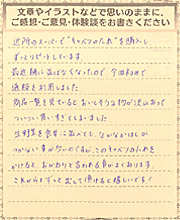 文章やイラストなどで思いのままに、
ご感想・ご意見・体験談をお書きください
近所のスーパーで"キャベツのたれ"を購入し、
ずっとリピートしています。
最近棚に並ばなくなったので 今回初めて
通販を利用しました
商品一覧を見ているとおいしそうな物が沢山あって
ついつい買いすぎてしまいました
生野菜を食卓に並べても、なかなかはしが
つかない事が多いのですが、このキャベツのたれを
かけると、おかわりと言われる事がよくあります。
これからもずっと出して頂けると嬉しいです!